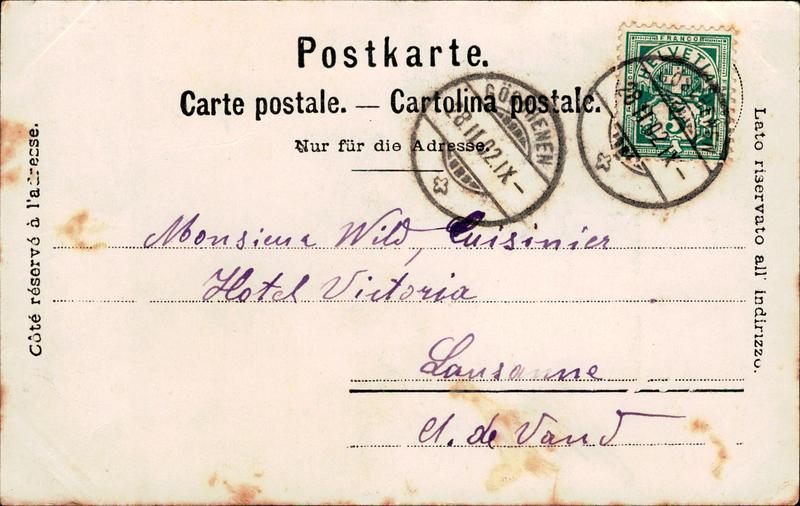 Postkarte.
Carte postale. — Cartolina postale.
Nur für die Adresse.
FRANCO
HELVETIA
5
GÖSCHENEN
28.II.02.IX–
28.II.02.IX–
Côté réservé à l'adresse.
Lato riservato all' indirizzo.
Monsieur Wild, Cuisinier
Hotel Victoria
Lausanne
Ct. de Vaud